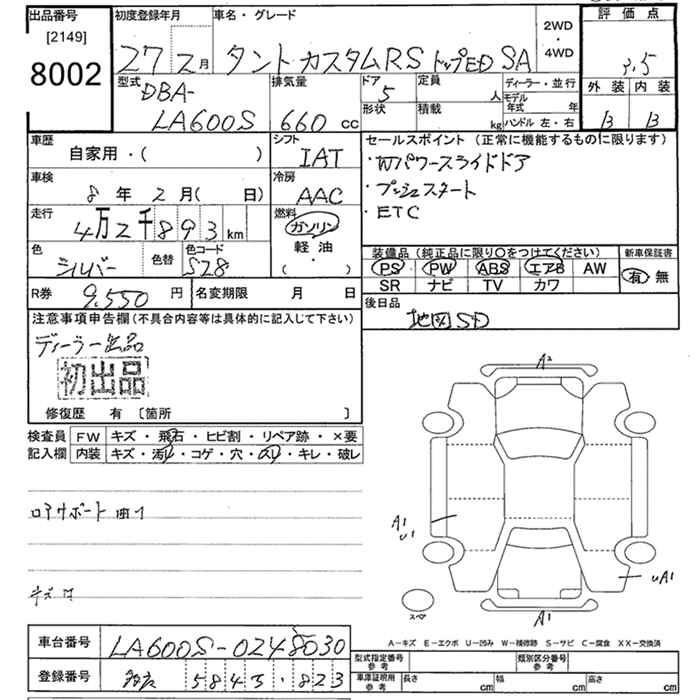 出品番号
[2149]
8002
初度登録年月
27 2月
車名・グレード
タント カスタムRS トップED SA
2WD
・
4WD
評価点
3.5
外装 内装
B B
型式
DBA-
LA600S
排気量
660 cc
ドア
5
形状
定員
人
積載
kg
ディーラー・並行
モデル年式 年
ハンドル 左・右
車歴
自家用・( )
シフト
IAT
車検
8年 2月( 日)
冷房
AAC
走行
4万2千893km
燃料
ガソリン
軽油
( ・ )
色
シルバー
色替
色コード
S28
R券
9,550 円
名変期限 月 日
セールスポイント (正常に機能するものに限ります)
・Wパワースライドドア
・プッシュスタート
・ETC
装備品 (純正品に限り○をつけてください)
PS PW ABS エアB AW
SR ナビ TV カワ
新車保証書
有 無
後日品
地図SD
注意事項申告欄 (不具合内容等は具体的に記入して下さい)
ディーラー出品
初出品
修復歴 有 〔箇所 〕
検査員記入欄
FW キズ・飛石・ヒビ割・リペア跡・×要
内装 キズ・汚レ・コゲ・穴・スレ・キレ・破レ
A2
A1
U1
UA1
A1
スペア
A-キズ E-エクボ U-凹み W-補修跡 S-サビ C-腐食 XX-交換済
車台番号
LA600S-0248030
登録番号
5843・823
型式指定番号参考
類別区分番号参考
車庫証明用参考
長さ cm
幅 cm
高さ cm